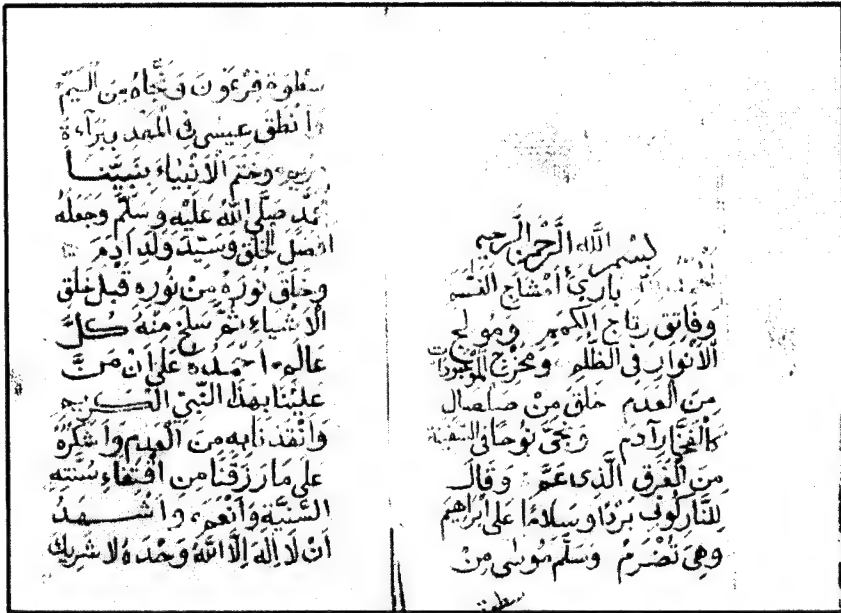 بسم الله الرحمن الرحيم
بارئ أمشاج النسم
وفاتق رتاج الكمم ومولج
الأنوار في الظلم ومخرج الموجودات
من العدم خلق من صلصال
كالفخار آدم ونجى نوحا في السفينة
من الغرق الذي عم وقال
للنار كوني بردا وسلاما على ابراهيم
وهي تضرم وسلم موسى من
سطوة
سطوة فرعون ونجاه من اليم
وانطق عيسى في المهد ببرآءة
وختم الأنبياء بنبينا
محمد صلى الله عليه وسلم وجعله
افضل الخلق وسيد ولد ادم
وخلق نوره من نوره قبل خلق
الأشياء ثم سلخ منه كل
عالم احمده على ان من
علينا بهذا النبي الكريم
وانقذنا به من العدم واشكره
على ما رزقنا من اقتفاء سنته
السنية وانعم واشهد
ان لا اله الا الله وحده لا شريك